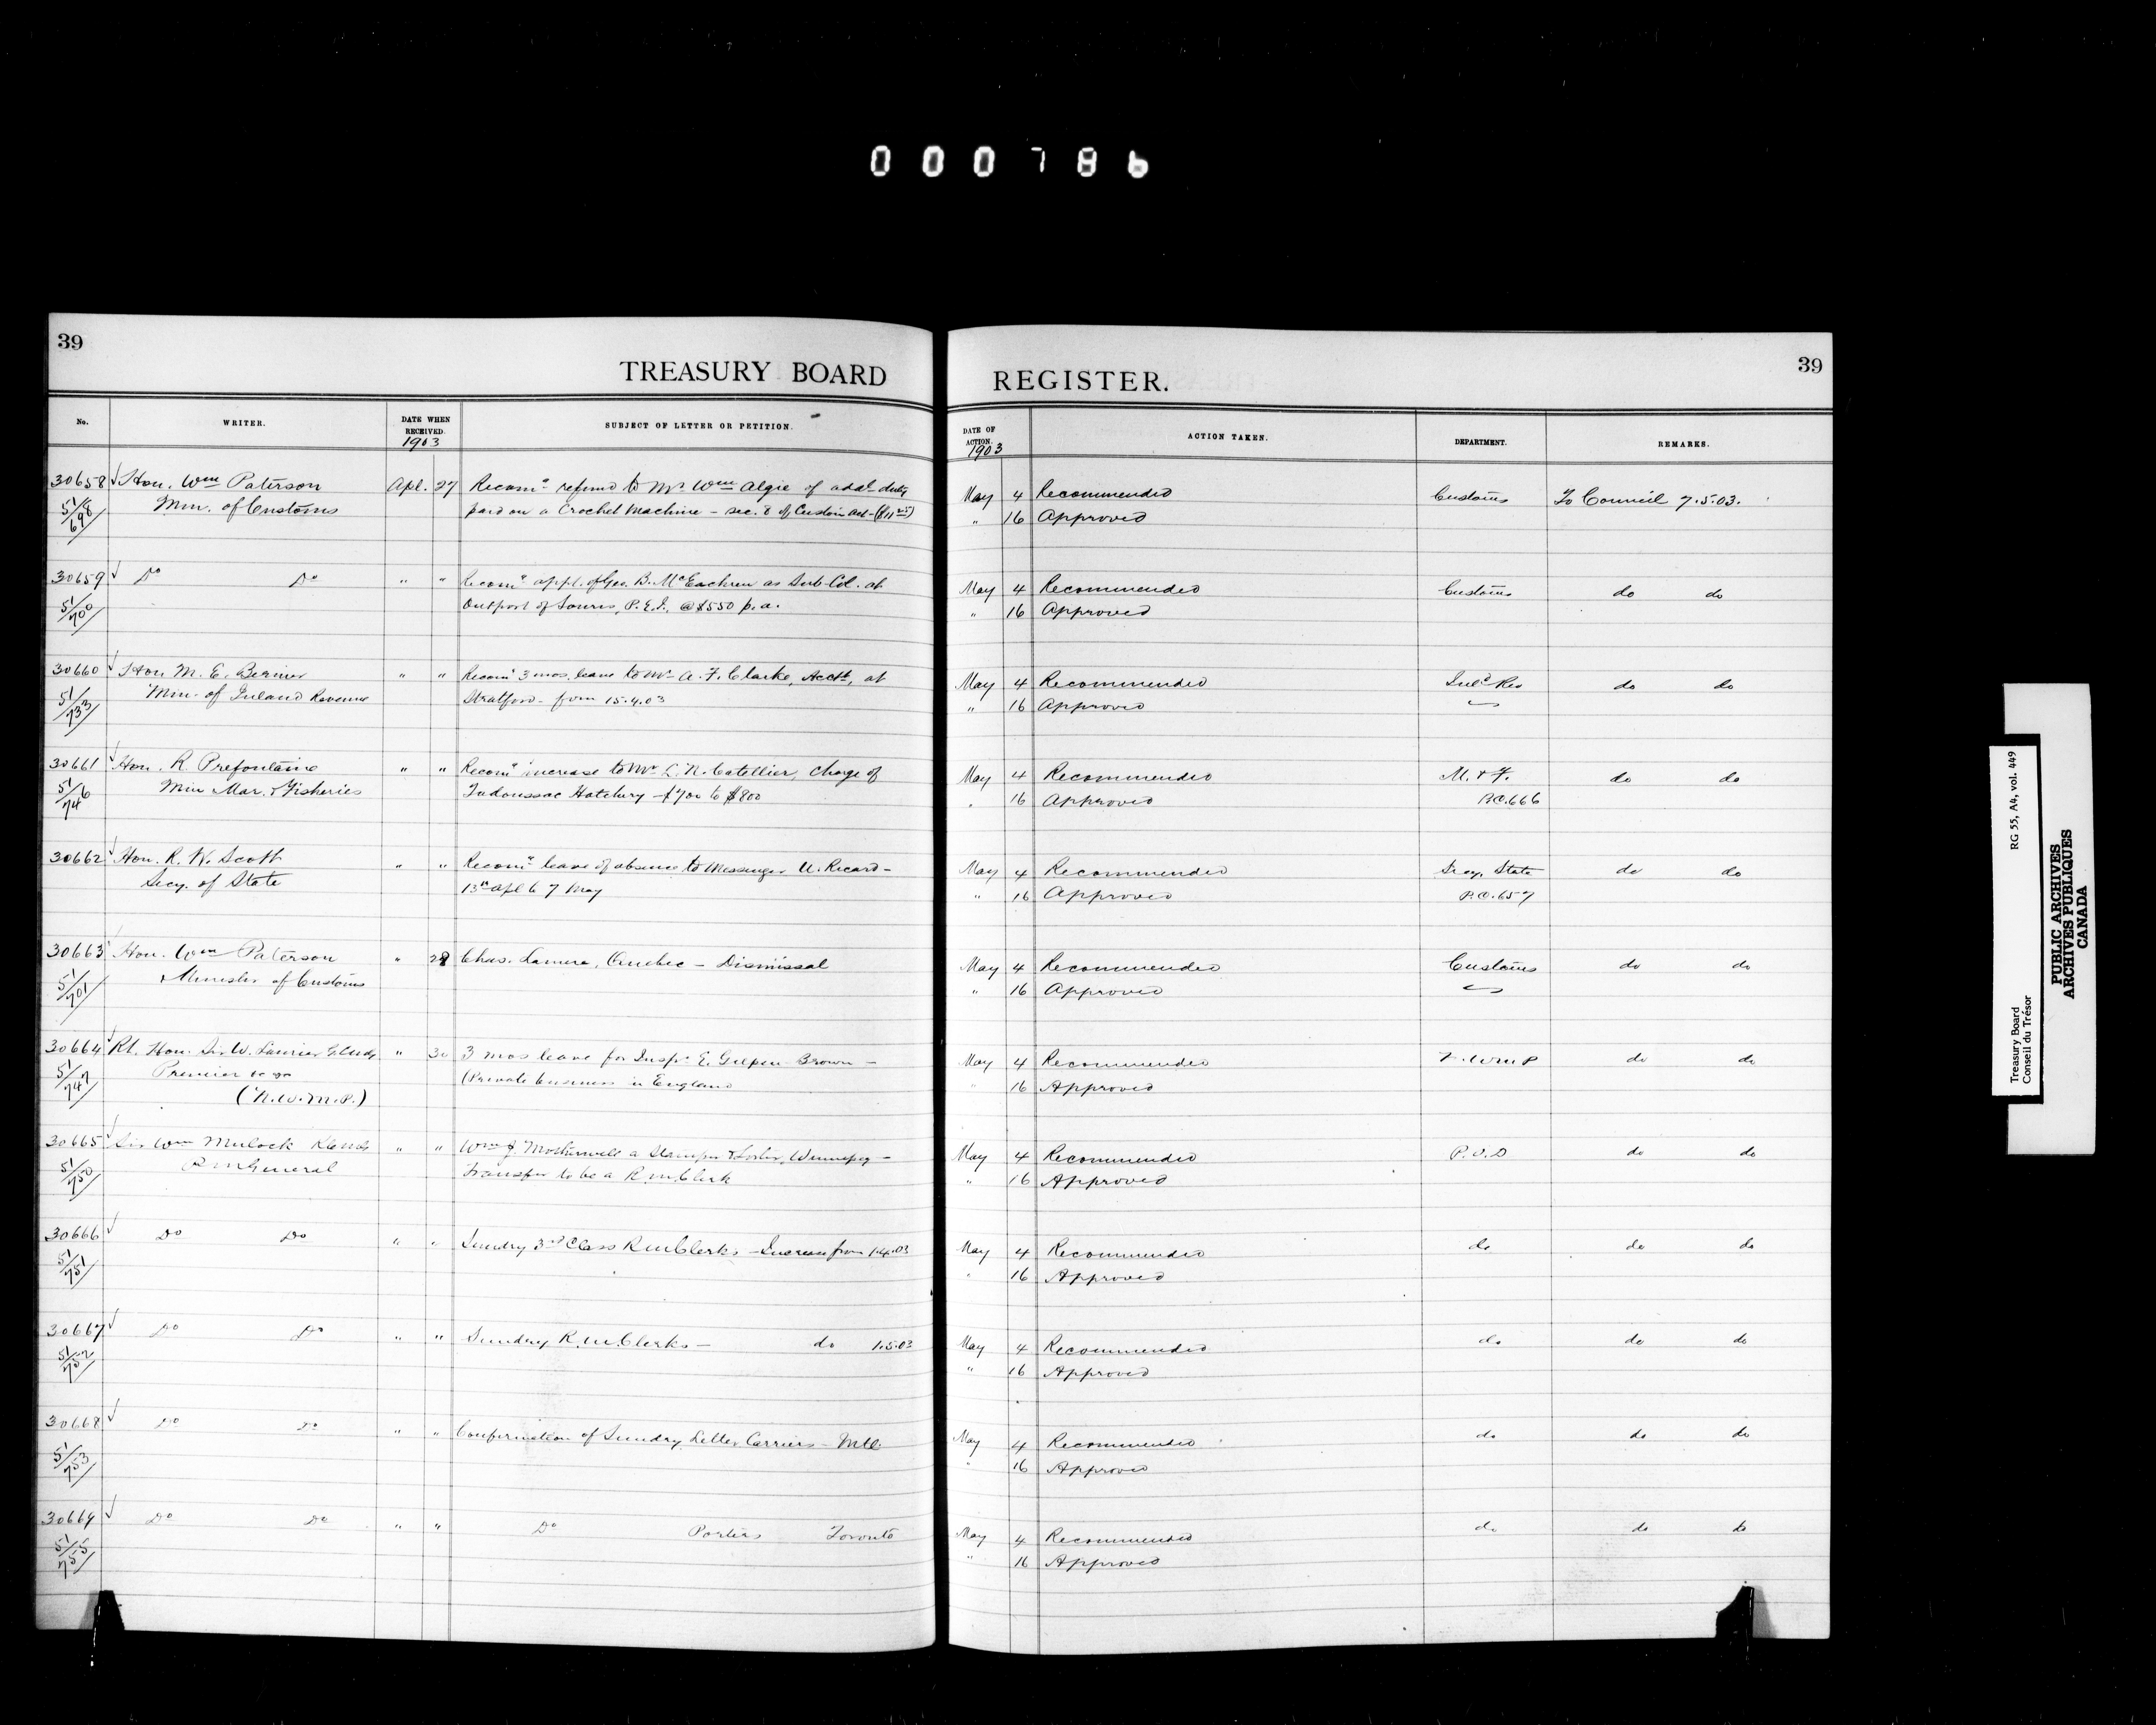 000786
39
TREASURY BOARD
REGISTER.
39
No.
WRITER.
DATE WHEN RECEIVED.
1903
SUBJECT OF LETTER OR PETITION.
DATE OF ACTION.
1903
ACTION TAKEN.
DEPARTMENT.
REMARKS.
30658 Hon. Wm Paterson Apl. 27 Recomg refund to Mr Wm Algie of addl duty May 4 Recommended Customs To Council 7.5.03.
51/698 Min. of Customs paid on a Crochet Machine - sec. 8 of Customs Act - " 16 Approved
30659 Do Do " " Recomg appt. of Geo. B. McEachren as Sub-Col. at May 4 Recommended Customs do do
51/700 Outport of Souris, P.E.I. @ $550 p.a. " 16 Approved
30660 Hon M. E. Bernier " " Recomg 3 mos. leave to Mr A. F. Clarke, Acctt, at May 4 Recommended Inld Rev do do
51/733 Min. of Inland Revenue Stratford - from 15.4.03 " 16 Approved
30661 Hon. R. Prefontaine " " Recomg increase to Mr L. N. Catellier, charge of May 4 Recommended M. & F. do do
51/746 Min Mar. & Fisheries Tadoussac Hatchery - $700 to $800 " 16 Approved P.C. 666
30662 Hon. R. W. Scott " " Recomg leave of absence to Messenger U. Ricard - May 4 Recommended Secy. State do do
Secy. of State 13th Apl to 7 May " 16 Approved P.C. 657
30663 Hon. Wm Paterson " 28 Chas. Lamere, Quebec - Dismissal May 4 Recommended Customs do do
51/701 Minister of Customs " 16 Approved
30664 Rt. Hon. Sir W. Laurier G.C.M.G. " 30 3 mos leave for Inspr E. Gilpin Brown - May 4 Recommended N.W.M.P do do
51/747 Premier (Private business in England " 16 Approved
(N.W.M.P.)
30665 Sir Wm Mulock K.C.M.G. " " Wm J. Motherwell a Stamper & Sorter, Winnipeg - May 4 Recommended P.O.D do do
51/750 P.M. General Transfer to be a R.M. Clerk " 16 Approved
30666 Do Do " " Sundry 3rd Class R.M. Clerks - Increase from 1.4.03 May 4 Recommended do do do
51/751 " 16 Approved
30667 Do Do " " Sundry R.M. Clerks - do 1.5.03 May 4 Recommended do do do
51/752 " 16 Approved
30668 Do Do " " Confirmation of Sundry Letter Carriers - Mtl. May 4 Recommended do do do
51/753 " 16 Approved
30669 Do Do " " Do Porters Toronto May 4 Recommended do do do
51/755 " 16 Approved
Treasury Board RG 55, A4, vol. 449
Conseil du Trésor
PUBLIC ARCHIVES
ARCHIVES PUBLIQUES
CANADA